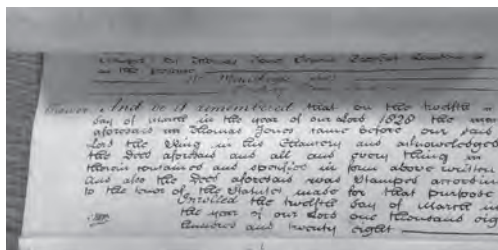 And be it remembered that on the twelfth
day of march in the year of our Lord 1828 the
aforesaid Thomas Jones came before our said
Lord the King in his Chancery and acknowledged
the Deed aforesaid and all and every thing in
therein contained and specified in form above written
And also the Deed aforesaid was Stamped according
to the tenor of the Statutes made for that purpose
Enrolled the twelfth day of March in
the year of our Lord one thousand eig
hundred and twenty eight